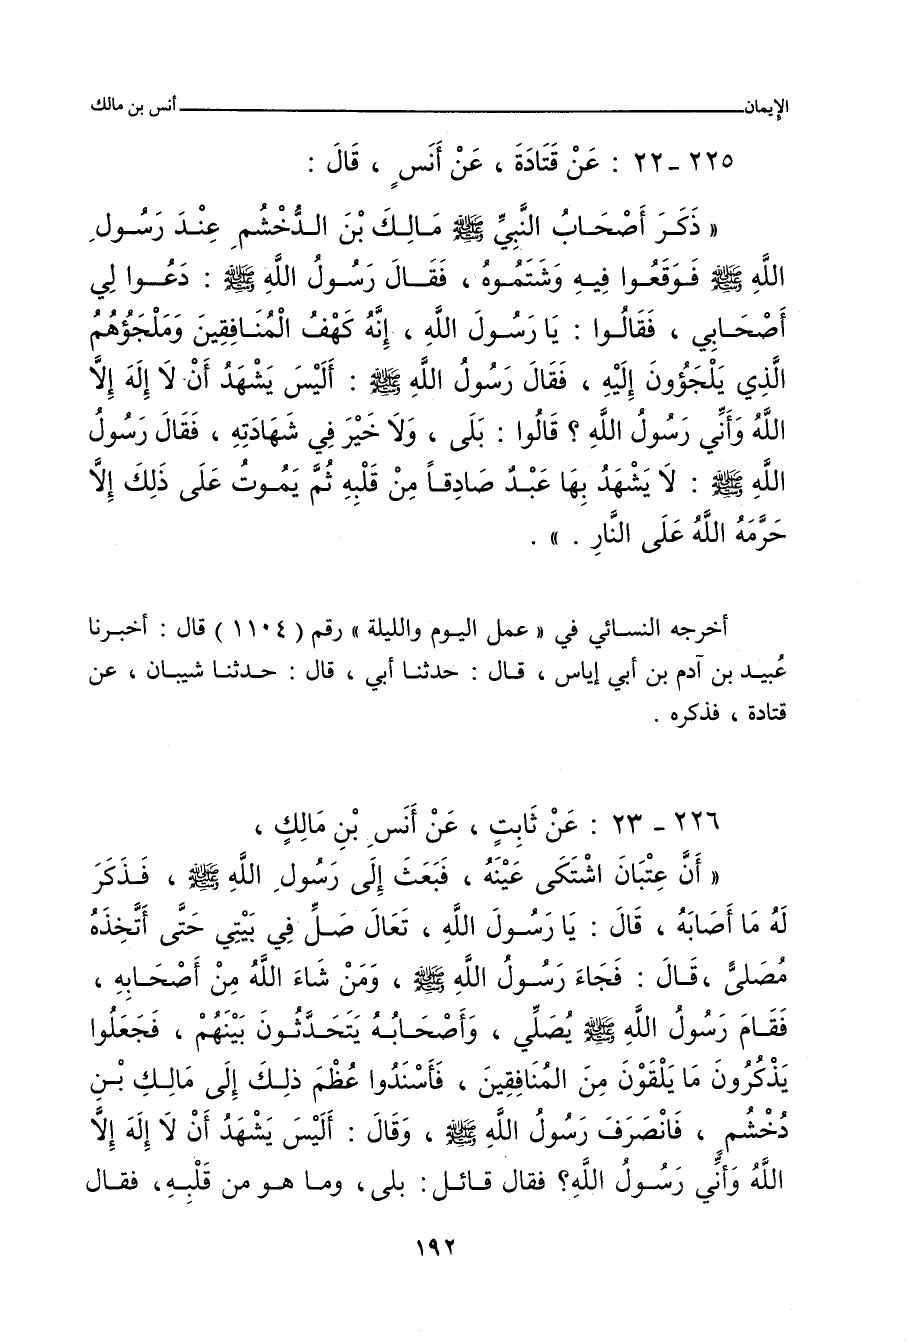 الإيمان ـــــــــــــــــ أنس بن مالك
٢٢٥ ـ ٢٢ : عَنْ قَتَادَةَ ، عَنْ أَنَسٍ ، قَالَ :
« ذَكَرَ أَصْحَابُ النَّبِيِّ ﷺ مَالِكَ بْنَ الدُّخْشُمِ عِنْدَ رَسُولِ
اللَّهِ ﷺ فَوَقَعُوا فِيهِ وَشَتَمُوهُ ، فَقَالَ رَسُولُ اللَّهِ ﷺ : دَعُوا لِي
أَصْحَابِي ، فَقَالُوا : يَا رَسُولَ اللَّهِ ، إِنَّهُ كَهْفُ الْمُنَافِقِينَ وَمَلْجَؤُهُمُ
الَّذِي يَلْجَؤُونَ إِلَيْهِ ، فَقَالَ رَسُولُ اللَّهِ ﷺ : أَلَيْسَ يَشْهَدُ أَنْ لَا إِلَهَ إِلَّا
اللَّهُ وَأَنِّي رَسُولُ اللَّهِ ؟ قَالُوا : بَلَى ، وَلَا خَيْرَ فِي شَهَادَتِهِ ، فَقَالَ رَسُولُ
اللَّهِ ﷺ : لَا يَشْهَدُ بِهَا عَبْدٌ صَادِقاً مِنْ قَلْبِهِ ثُمَّ يَمُوتُ عَلَى ذَلِكَ إِلَّا
حَرَّمَهُ اللَّهُ عَلَى النَّارِ . » .
أخرجه النسائي في « عمل اليوم والليلة » رقم ( ١١٠٤ ) قال : أخبرنا
عُبيد بن آدم بن أبي إياس ، قال : حدثنا أبي ، قال : حدثنا شيبان ، عن
قتادة ، فذكره .
٢٢٦ ـ ٢٣ : عَنْ ثَابِتٍ ، عَنْ أَنَسِ بْنِ مَالِكٍ ،
« أَنَّ عِتْبَانَ اشْتَكَى عَيْنَهُ ، فَبَعَثَ إِلَى رَسُولِ اللَّهِ ﷺ ، فَذَكَرَ
لَهُ مَا أَصَابَهُ ، قَالَ : يَا رَسُولَ اللَّهِ ، تَعَالَ صَلِّ فِي بَيْتِي حَتَّى أَتَّخِذَهُ
مُصَلىًّ ، قَالَ : فَجَاءَ رَسُولُ اللَّهِ ﷺ ، وَمَنْ شَاءَ اللَّهُ مِنْ أَصْحَابِهِ ،
فَقَامَ رَسُولُ اللَّهِ ﷺ يُصَلِّي ، وَأَصْحَابُهُ يَتَحَدَّثُونَ بَيْنَهُمْ ، فَجَعَلُوا
يَذْكُرُونَ مَا يَلْقَوْنَ مِنَ المُنَافِقِينَ ، فَأَسْنَدُوا عُظْمَ ذلِكَ إِلَى مَالِكِ بْنِ
دُخْشُمٍ ، فَانْصَرَفَ رَسُولُ اللَّهِ ﷺ ، وَقَالَ : أَلَيْسَ يَشْهَدُ أَنْ لَا إِلَهَ إِلَّا
اللَّهُ وَأَنِّي رَسُولُ اللَّهِ؟ فقال قائل : بلى ، وما هو من قَلْبِهِ، فقال
١٩٢